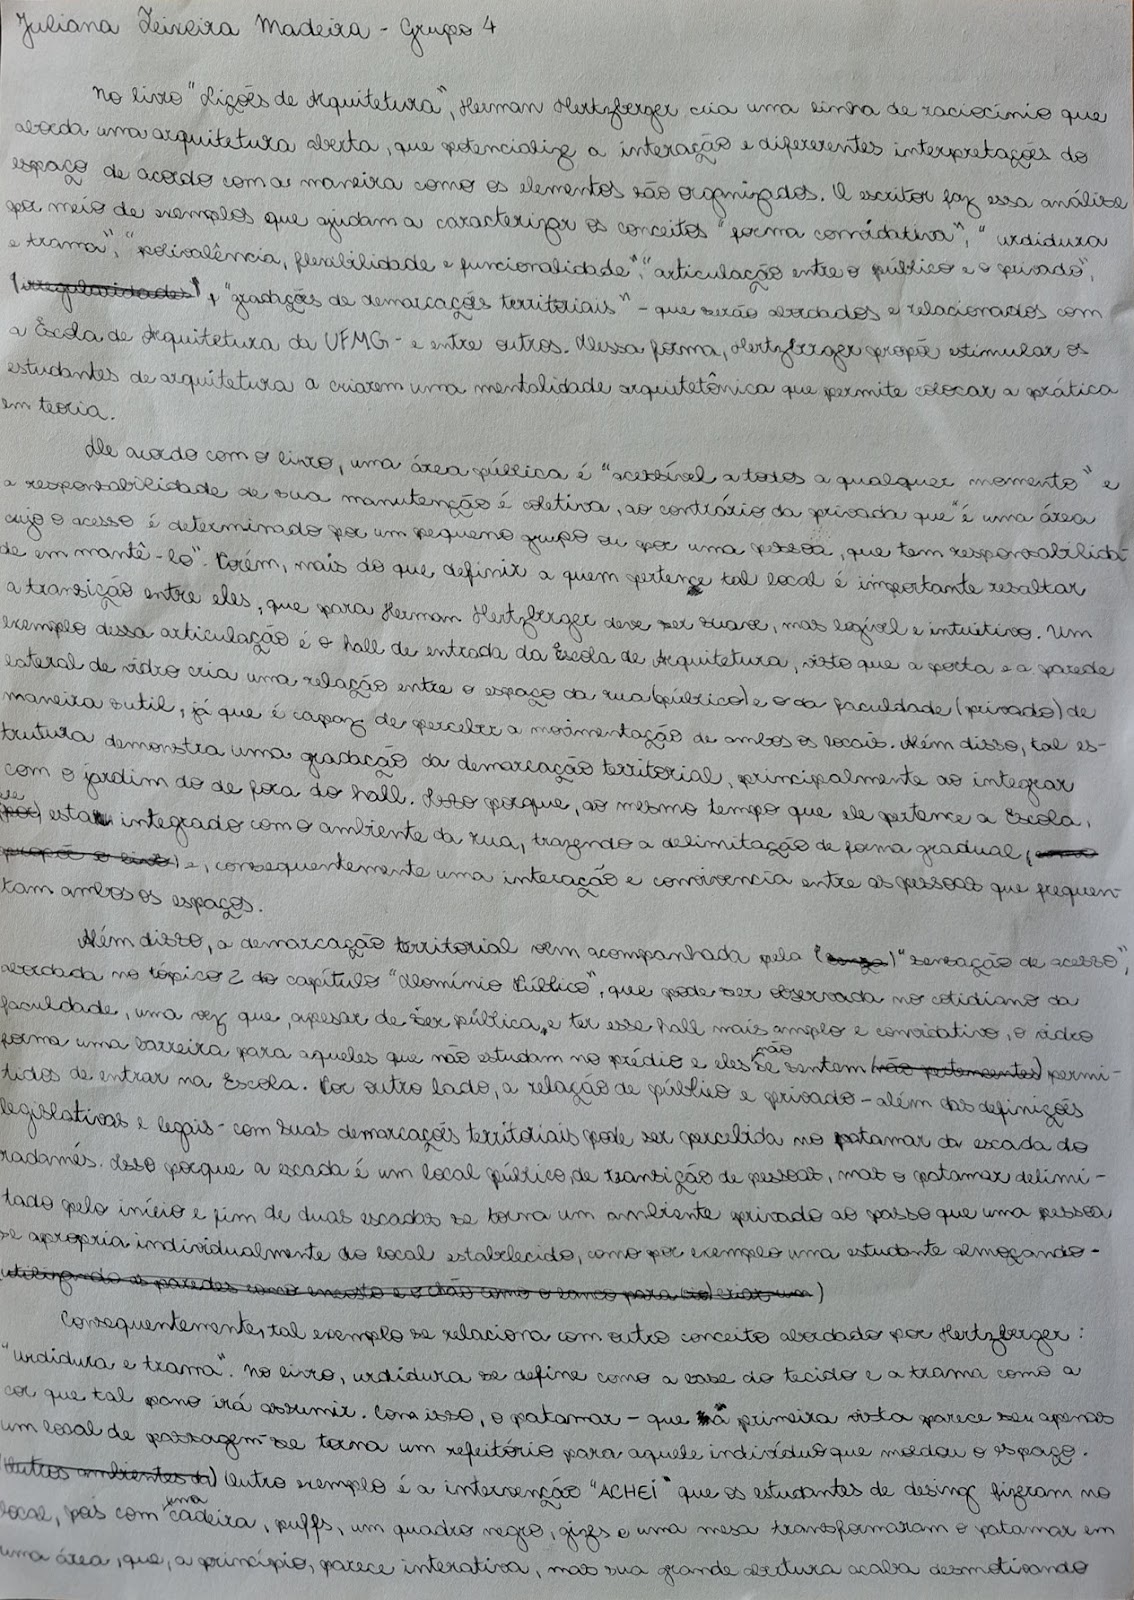 Juliana Teixeira Madeira - Grupo 4
No livro "Lições de Arquitetura", Herman Hertzberger cria uma linha de raciocínio que
aborda uma arquitetura aberta, que potencializa a interação e diferentes interpretações do
espaço de acordo com a maneira como os elementos são organizados. O escritor faz essa análise
por meio de exemplos que ajudam a caracterizar os conceitos "forma convidativa", "urdidura
e trama", "polivalência, flexibilidade e funcionalidade", "articulação entre o público e o privado",
(irregularidades), "gradações de demarcações territoriais" - que serão abordados e relacionados com
a Escola de Arquitetura da UFMG - e entre outros. Dessa forma, Hertzberger propõe estimular os
estudantes de arquitetura a criarem uma mentalidade arquitetônica que permite colocar a prática
em teoria.
De acordo com o livro, uma área pública é "acessível a todos a qualquer momento" e
a responsabilidade de sua manutenção é coletiva, ao contrário da privada que "é uma área
cujo o acesso é determinado por um pequeno grupo ou por uma pessoa, que tem responsabilida-
de em mantê-lo". Porém, mais do que definir a quem pertence tal local é importante resaltar
a transição entre eles, que para Herman Hertzberger deve ser suave, mas legível e intuitivo. Um
exemplo dessa articulação é o hall de entrada da Escola de Arquitetura, visto que a porta e a parede
lateral de vidro cria uma relação entre o espaço da rua (público) e o da faculdade (privado) de
maneira sutil, já que é capaz de perceber a movimentação de ambos os locais. Além disso, tal es-
trutura demonstra uma gradação da demarcação territorial, principalmente ao integrar
com o jardim do de fora do hall. Isso porque, ao mesmo tempo que ele pertence a Escola,
ele (por) está integrado com o ambiente da rua, trazendo a delimitação de forma gradual, (como
propõe o livro) e, consequentemente uma interação e convivencia entre as pessoas que frequen-
tam ambos os espaços.
Além disso, a demarcação territorial vem acompanhada pela "sensação de acesso",
abordada no tópico 2 do capítulo "Domínio Público", que pode ser observada no cotidiano da
faculdade, uma vez que, apesar de ser pública, e ter esse hall mais amplo e convidativo, o vidro
forma uma barreira para aqueles que não estudam no prédio e eles não se sentem (não pertencentes) permi-
tidos de entrar na Escola. Por outro lado, a relação de público e privado - além das definições
legislativas e legais - com suas demarcações territoriais pode ser percebida no patamar da escada do
radamés. Isso porque a escada é um local público, de transição de pessoas, mas o patamar delimi-
tado pelo início e fim de duas escadas se torna um ambiente privado ao passo que uma pessoa
se apropria individualmente do local estabelecido, como por exemplo uma estudante almoçando -
utilizando as paredes como encosto e o chão como o banco para criar um)
Consequentemente, tal exemplo se relaciona com outro conceito abordado por Hertzberger:
"urdidura e trama". No livro, urdidura se define como a base do tecido e a trama como a
cor que tal pano irá assumir. Com isso, o patamar - que à primeira vista parece seu apenas
um local de passagem - se torna um refeitório para aquele indivíduo que moldou o espaço.
(Outros ambientes da) Outro exemplo é a intervenção "ACHEI" que os estudantes de desing fizeram no
local, pois com uma cadeira, puffs, um quadro negro, gizes e uma mesa transformaram o patamar em
uma área, que, a princípio, parece interativa, mas sua grande abertura acaba desmotivando